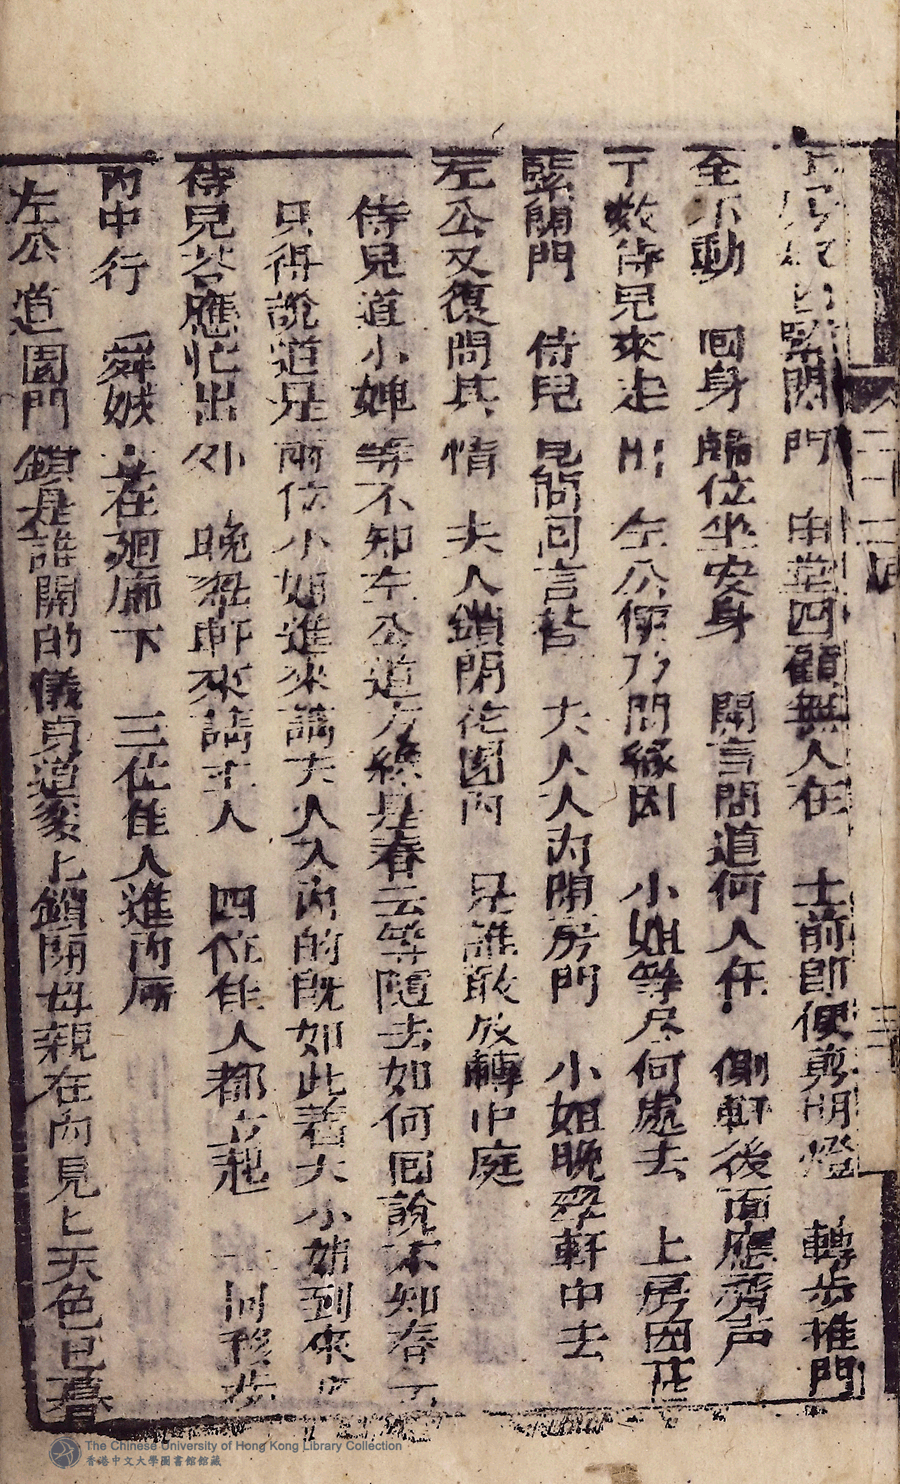 緊閉門 中堂四顧無人在 士前即便剪明燈 轉步推門
全不動 回身歸位坐安身 開言問道何人在 側軒後面應齊声
了数侍兒來走出 左公便乃問緣因 小姐等尽何處去 上房因甚
緊關門 侍兒見問回言荅 夫人人內閉房門 小姐晚翠軒中去
左公又復問其情 夫人鎖閉花園內 是誰敢放轉中庭
侍兒道小婢等不知左公道方纔是春云等隨去如何回說不知春云
只得說道是兩位小姐進來請夫人入內的既如此着大小姐到來
侍兒荅應忙出外 晚翠軒來請主人 四位佳人都立起 一同移步
內中行 舜娥在廻廊下 三位佳人進內房
左公道園門鎖是誰開的儀貞道爹上鎖開母親在內見上天色已暮
二十二回
三十
The Chinese University of Hong Kong Library Collection
香港中文大學圖書館館藏